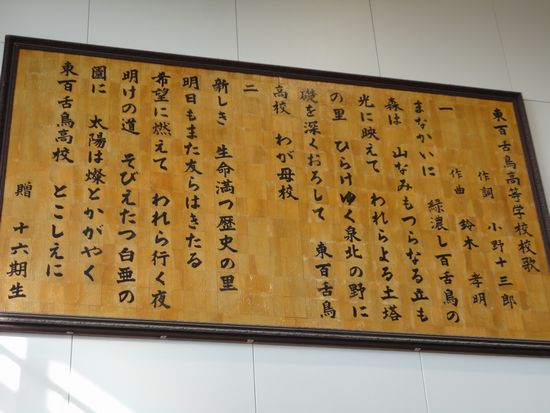 東百舌鳥高等学校校歌
作詞 小野十三郎
作曲 鈴木孝明
一
まなかいに 緑濃し百舌鳥の
森は 山なみもつらなる立も
光に映えて われらよる土塔
の里 ひらけゆく泉北の野に
礎を深くおろして 東百舌鳥
高校 わが母校
二
新しき 生命満つ歴史の里
明日もまた友らはきたる
希望に燃えて われら行く夜
明けの道 そびえたつ白亜の
園に 太陽は燦とかがやく
東百舌鳥高校 とこしえに
贈 十六期生